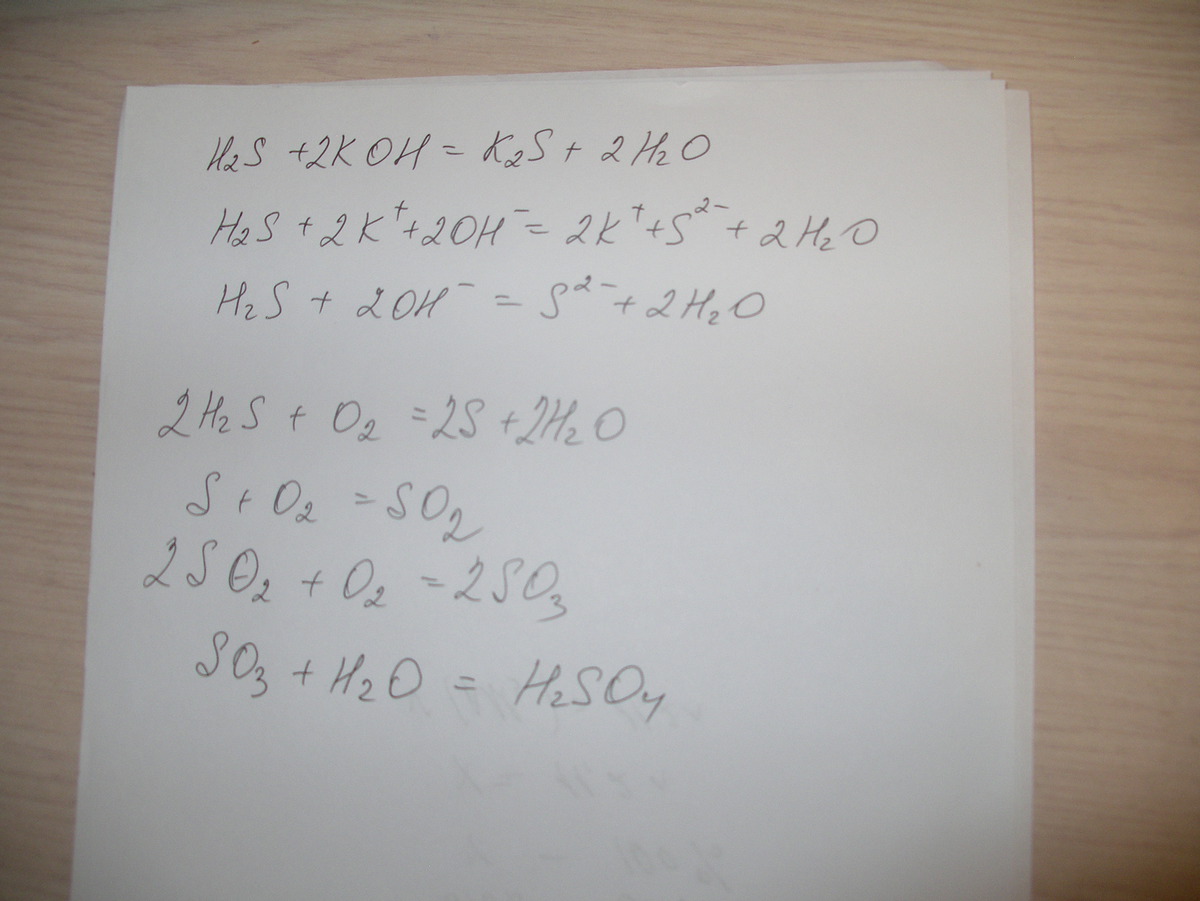 H₂S + 2KOH = K₂S + 2H₂O
H₂S + 2K⁺ + 2OH⁻ = 2K⁺ + S²⁻ + 2H₂O
H₂S + 2OH⁻ = S²⁻ + 2H₂O
2H₂S + O₂ = 2S + 2H₂O
S + O₂ = SO₂
2SO₂ + O₂ = 2SO₃
SO₃ + H₂O = H₂SO₄